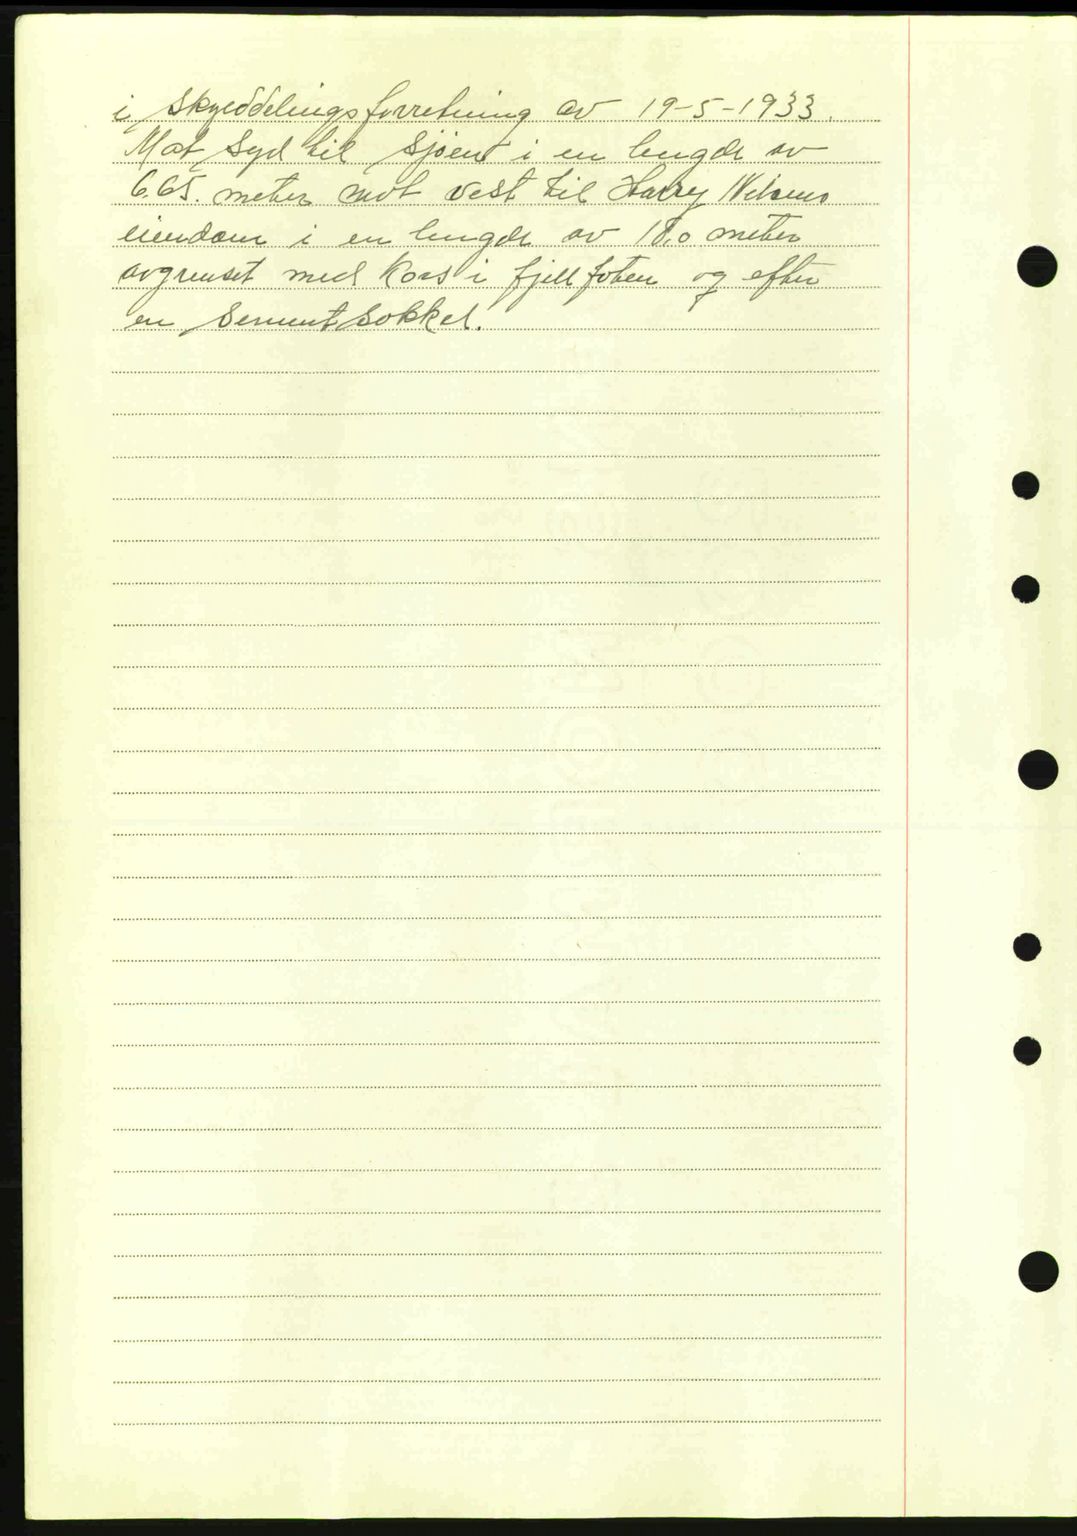 i skylddelingsforretning av 19-5-1933.
Mot syd til sjøen i en lengde av
6.65. meter mot vest til Harry Nilsens
eiendom i en lengde av 18.0 meter
avgrenset med Kors i fjellfoten og efter
en sement sokkel.